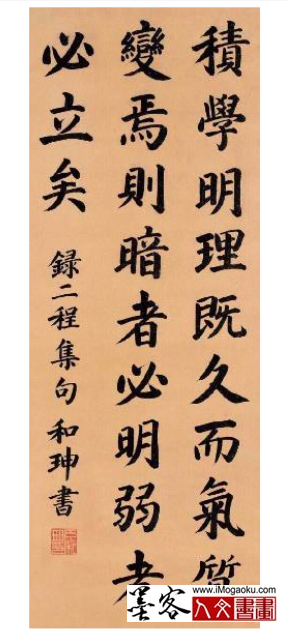 積學明理既久而氣質
變焉則暗者必明弱者
必立矣
録二程集句 和珅書
墨客
www.iMogaoku.com
人文書畫